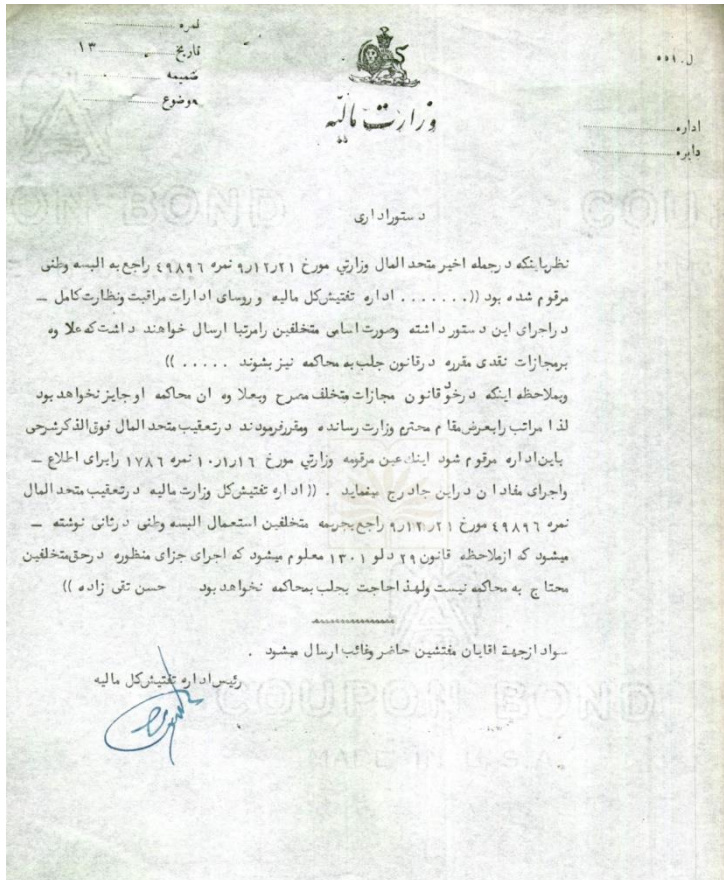 نمره
تاریخ ۱۳
ضمیمه
موضوع
ل. ۵۵۱
وزارت مالیّه
اداره
دایره
دستوراداری
نظرباینکه درجمله اخیر متحدالمال وزارتي مورخ ۹٫۱۲٫۲۱ نمره ۴۹۸۹۶ راجع به البسه وطنی
مرقوم شده بود ((....... اداره تفتیش‌کل مالیه و روسای ادارات مراقبت ونظارت کامل ــ
دراجرای این دستور داشته وصورت اسامی متخلفین رامرتبا ارسال خواهند داشت که علاوه
برمجازات نقدی مقرره درقانون جلب به محاکمه نیز بشوند ..... ))
وبملاحظه اینکه درخود قانون مجازات متخلف مصرح وبعلاوه ان محاکمه او جایز نخواهد بود
لذا مراتب رابعرض مقام محترم وزارت رسانده ومقررفرمودند درتعقیب متحدالمال فوق‌الذکر شرحی
باین اداره مرقوم شود اینک عین مرقومه وزارتي مورخ ۱۰٫۱٫۱۶ نمره ۱۷۸۶ رابرای اطلاع ــ
واجرای مفادان دراین جا درج مینماید . (( اداره تفتیش‌کل وزارت مالیه درتعقیب متحدالمال
نمره ۴۹۸۹۶ مورخ ۹٫۱۲٫۲۱ راجع بجریمه متخلفین استعمال البسه وطنی درثانی نوشته ــ
میشود که ازملاحظه قانون ۲۹ دلو ۱۳۰۱ معلوم میشود که اجرای جزای منظوره درحق متخلفین
محتاج به محاکمه نیست ولهذا حاجت بجلب بمحاکمه نخواهد بود حسن تقی زاده ))
سواد ازجهة اقایان مفتشین حاضر وغائب ارسال میشود .
رئیس اداره تفتیش‌کل مالیه
COUPON BOND
COUPON BOND
MADE IN U.S.A.